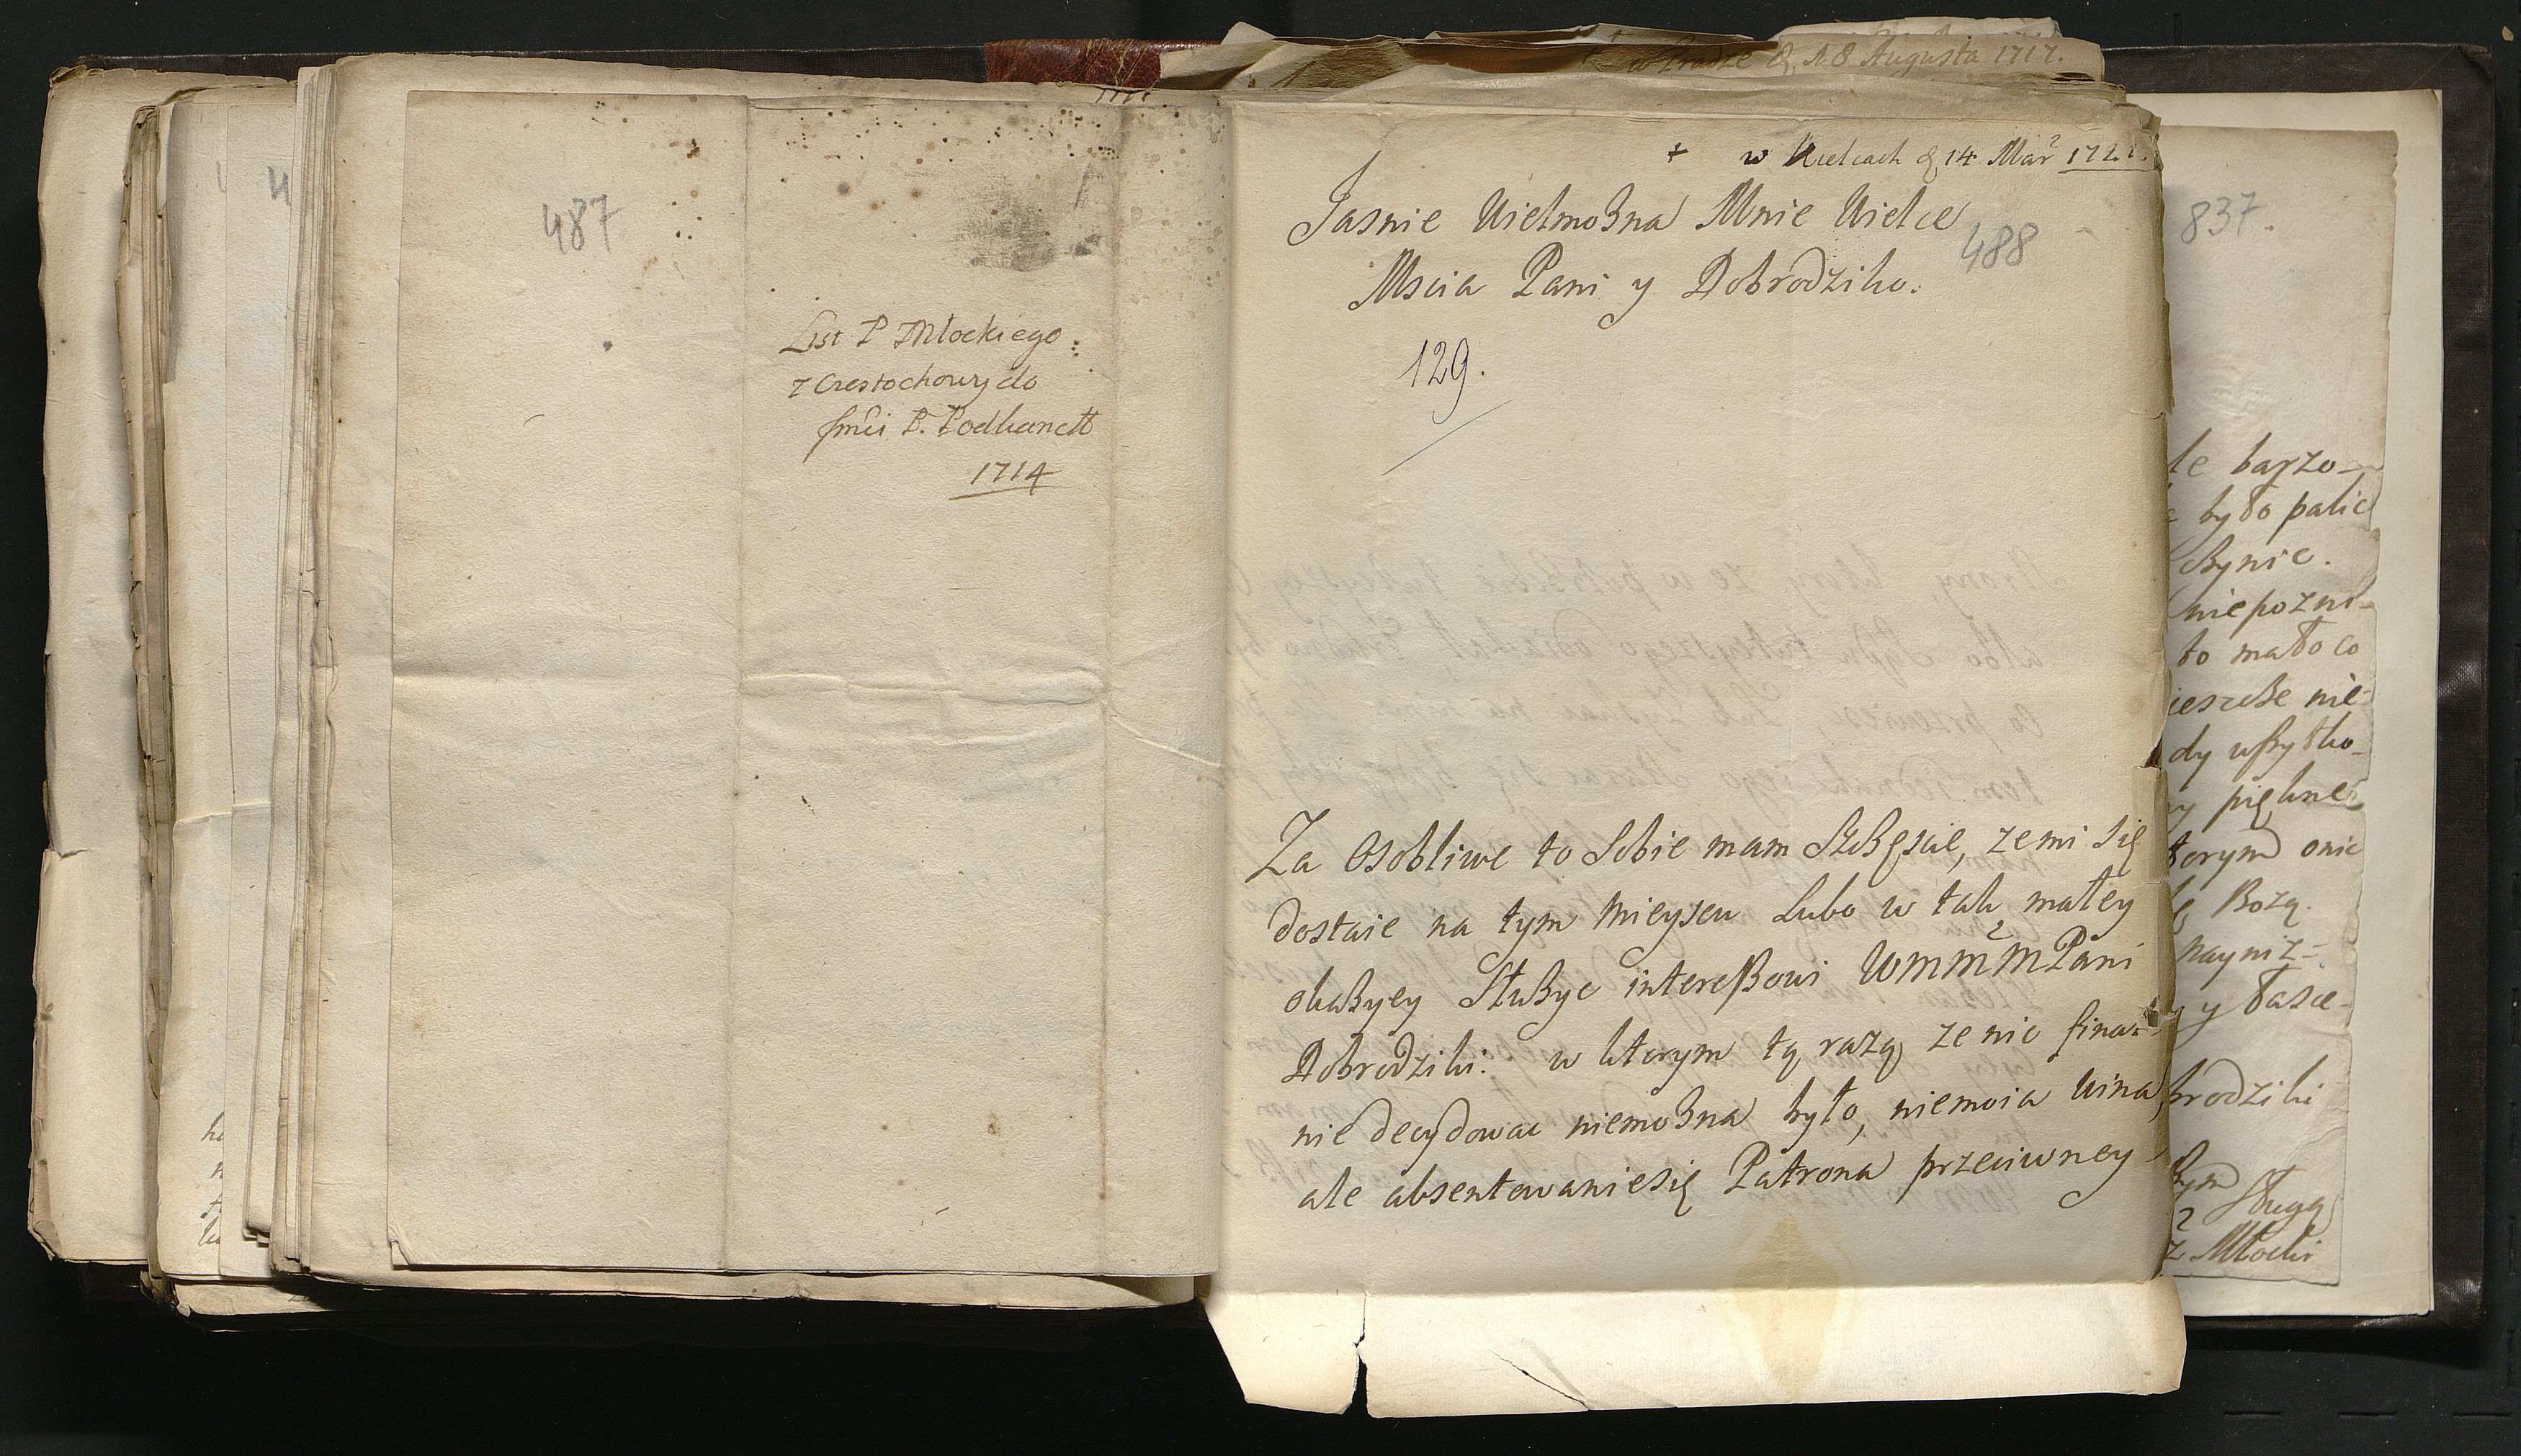 487
List P Młockiego
z Częstochowy do
Jmci P. Podkanclt
1714
w Kielcach d 14 Mar 172
Jasnie Wielmożna Mnie Wielce
488
Mscia Pani y Dobrodziko.
129.
Za osobliwe to sobie mam Szczęscie, ze mi się
dostaie na tym mieyscu Lubo w tak małey
okażyey Służyc interessowi WMMMPani
Dobrodziki: w ktorym tą razą ze nic final=
nie decydowac niemożna było, niemoia wina,
ale absentowaniesię Patrona przeciwney
8 Augusta 1717.
837.
le barzo
było palic
niepozni
to mało co
ieszcze nie
dy wszytko
piękne
torym onie
Bożą.
nayniż
y łasce
brodziki
Sługą
Młocki